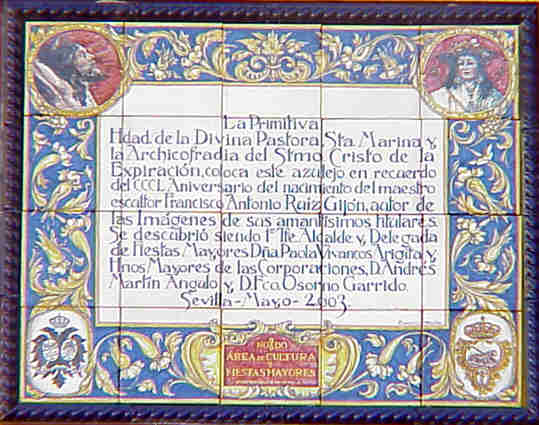 La Primitiva
Hdad. de la Divina Pastora, Sta. Marina y,
la Archicofradia del Stmo Cristo de la
Expiración, coloca este azulejo en recuerdo
del CCCL Aniversario del nacimiento del maestro
escultor Francisco Antonio Ruiz Gijón, autor de
las Imágenes de sus amantísimos titulares.
Se descubrió siendo 1er Tte. Alcalde y, Delegada
de Fiestas Mayores Dña Paola Vivancos Arigita y,
Hnos Mayores de las Corporaciones, D. Andrés
Martín Angulo y, D. Fco. Osorno Garrido.
Sevilla - Mayo - 2003.
NO8DO
ÁREA DE CULTURA
Y
FIESTAS MAYORES